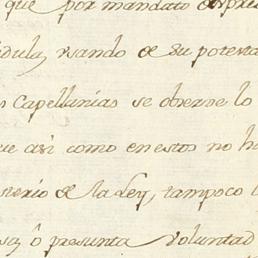 que por mandato expre
dula, usando de su potesta
s Capellanias se observe lo
ue asi como en estos no ha
sterio de la Ley, tampoco
sa, ô presunta voluntad